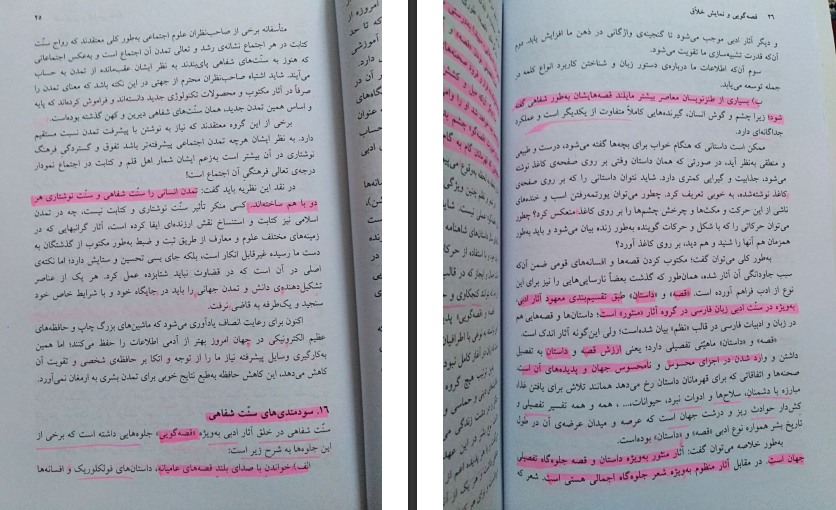 ۲۵
متأسفانه برخی از صاحب‌نظران علوم اجتماعی به‌طور کلی معتقدند که رواج سنّت
کتابت در هر اجتماع نشانه‌ی رشد و تعالی تمدن آن اجتماع است و به‌عکس اجتماعاتی
که هنوز به سنّت‌های شفاهی پای‌بندند به نظر ایشان عقب‌مانده از تمدن به حساب
می‌آیند. شاید اشتباه صاحب‌نظران محترم از جهتی در این نکته باشد که معنای تمدن را
صرفاً در آثار مکتوب و محصولات تکنولوژی جدید دانسته‌اند و فراموش کرده‌اند که پایه
و اساس همین تمدن جدید، همان سنّت‌های شفاهی دیرین و کهن گذشته بوده‌است.
برخی از این گروه معتقدند که نیاز به نوشتن با پیشرفت تمدن نسبت مستقیم
دارد. به نظر ایشان هرچه تمدن اجتماعی پیشرفته‌تر باشد تفوق و گستردگی فرهنگ
نوشتاری در آن بیشتر است به‌زعم ایشان شمار اهل قلم و کتابت در اجتماع نمودار
درجه‌ی تعالی فرهنگی آن اجتماع است!
در نقد این نظریه باید گفت: تمدن انسانی را سنّت شفاهی و سنّت نوشتاری هر
دو با هم ساخته‌اند. کسی منکر تأثیر سنّت نوشتاری و کتابت نیست، چه در تمدن
اسلامی نیز کتابت و استنساخ نقش ارزنده‌ای ایفا کرده است، آثار گرانبهایی که در
زمینه‌های مختلف علوم و معارف از طریق ثبت و ضبط به‌طور مکتوب از گذشتگان به
دست ما رسیده غیرقابل انکار است، بلکه جای بسی تحسین و ستایش دارد؛ اما نکته‌ی
اصلی در آن است که در قضاوت نباید شتابزده عمل کرد. هر یک از عناصر
تشکیل‌دهنده‌ی دانش و تمدن جهانی را باید در جایگاه خود و با شرایط خاص خود
سنجید و یک‌طرفه به قاضی نرفت.
اکنون برای رعایت انصاف یادآوری می‌شود که ماشین‌های بزرگ چاپ و حافظه‌های
عظیم الکترونیکی در جهان امروز بهتر از آدمی اطلاعات را حفظ می‌کنند؛ اما همین
به‌کارگیری وسایل پیشرفته نیاز ما را از توجه و اتکا بر حافظه‌ی شخصی و تقویت آن
کاهش می‌دهد، این کاهش حافظه به‌طبع نتایج خوبی برای تمدن بشری به ارمغان نمی‌آورد.
۱۶. سودمندی‌های سنّت شفاهی
سنّت شفاهی در خلق آثار ادبی به‌ویژه «قصه‌گویی» جلوه‌هایی داشته است که برخی از
این جلوه‌ها به شرح زیر است:
الف) خواندن با صدای بلند قصه‌های عامیانه، داستان‌های فولکلوریک و افسانه‌ها
۲۶ قصه‌گویی و نمایش خلاق
و دیگر آثار ادبی موجب می‌شود تا گنجینه‌ی واژگانی در ذهن ما افزایش یابد. دوم
آن‌که قدرت تشبیه‌سازی ما تقویت می‌شود.
سوم آن‌که اطلاعات ما درباره‌ی دستور زبان و شناختن کاربرد انواع کلمه در
جمله توسعه می‌یابد.
ب) بسیاری از طنزنویسان معاصر بیشتر مایلند قصه‌هایشان به‌طور شفاهی گفته
شود؛ زیرا چشم و گوش انسان، گیرنده‌هایی کاملاً متفاوت از یکدیگر است و عملکرد
جداگانه‌ای دارد.
ممکن است داستانی که هنگام خواب برای بچه‌ها گفته می‌شود، درست و طبیعی
و منطقی به‌نظر آید، در صورتی که همان داستان وقتی بر روی صفحه‌ی کاغذ نوشته
می‌شود، جذابیت و گیرایی کمتری دارد. شاید نتوان داستانی را که بر روی صفحه‌ی
کاغذ نوشته‌شده، به خوبی تعریف کرد. چطور می‌توان پورتمه‌رفتن اسب و خنده‌های
ناشی از این حرکت و مکث‌ها و چرخش چشم‌ها را بر روی کاغذ منعکس کرد؟ چطور
می‌توان حرکاتی را که با شکل و حرکات گوینده به‌طور زنده بیان می‌شود و باید به‌طور
همزمان هم آنها را شنید و هم دید، بر روی کاغذ آورد؟
به‌طور کلی می‌توان گفت: مکتوب کردن قصه‌ها و افسانه‌های قومی ضمن آن‌که
سبب جاودانگی آن آثار شده، همان‌طور که گذشت بعضاً نارسایی‌هایی را نیز برای این
نوع از ادب فراهم آورده است. «قصه» و «داستان» طبق تقسیم‌بندی معهود آثار ادبی،
به‌ویژه در سنّت ادبی زبان فارسی در گروه آثار «منثور» است؛ داستان‌ها و قصه‌هایی هم
در زبان و ادبیات فارسی در قالب «نظم» بیان شده‌است؛ ولی این‌گونه آثار اندک است.
«قصه» و «داستان» ماهیتی تفصیلی دارد؛ یعنی ارزش قصه و داستان به تفصیل
داشتن و وارد شدن در اجزای محسوس و نامحسوس جهان و پدیده‌های آن است.
صحنه‌ها و اتفاقاتی که برای قهرمانان داستان رخ می‌دهد همانند تلاش برای یافتن غذا،
مبارزه با دشمنان، سلاح‌ها و ادوات نبرد، حیوانات،... ، همه و همه تفسیر تفصیلی و
کش‌دار حوادث ریز و درشت جهان است که عرصه و میدان عرضه‌ی آن در طول
تاریخ بشر همواره نوع ادبی «قصه» و «داستان» بوده‌است.
به‌طور خلاصه می‌توان گفت: آثار منثور به‌ویژه داستان و قصه جلوه‌گاه تفصیلی
جهان است. در مقابل آثار منظوم به‌ویژه شعر جلوه‌گاه اجمالی هستی است. شعر که